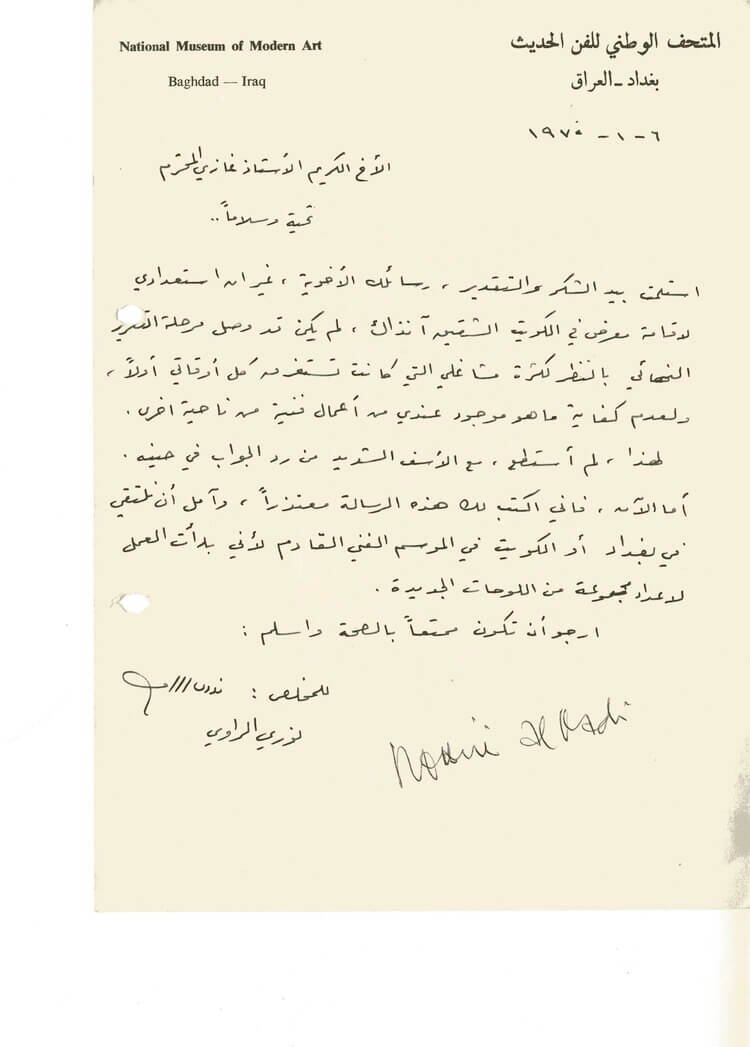 National Museum of Modern Art
Baghdad — Iraq
المتحف الوطني للفن الحديث
بغداد - العراق
٦ - ١ - ١٩٧٠
الأخ الكريم الأستاذ غازي المحترم
تحية وسلاماً ..
استلمت بيد الشكر والتقدير ، رسائلك الأخوية ، غير ان استعدادي
لاقامة معرض في الكويت الشقيق آنذاك ، لم يكن قد وصل مرحلة
النهائي بالنظر لكثرة مشاغلي التي كانت تستغرق كل أوقاتي أولاً ،
ولعدم كفاية ما هو موجود عندي من أعمال فنية من ناحية اخرى .
لهذا ، لم أستطع ، مع الأسف الشديد من رد الجواب في حينه .
أما الآن ، فاني اكتب لك هذه الرسالة معتذراً ، وآمل أن نلتقي
في بغداد أو الكويت في الموسم الفني القادم لأني بدأت العمل
لاعداد مجموعة من اللوحات الجديدة .
ارجو أن تكون ممتعاً بالصحة واسلم :
للمخلص :
نوري الراوي
Nouri al Rawi